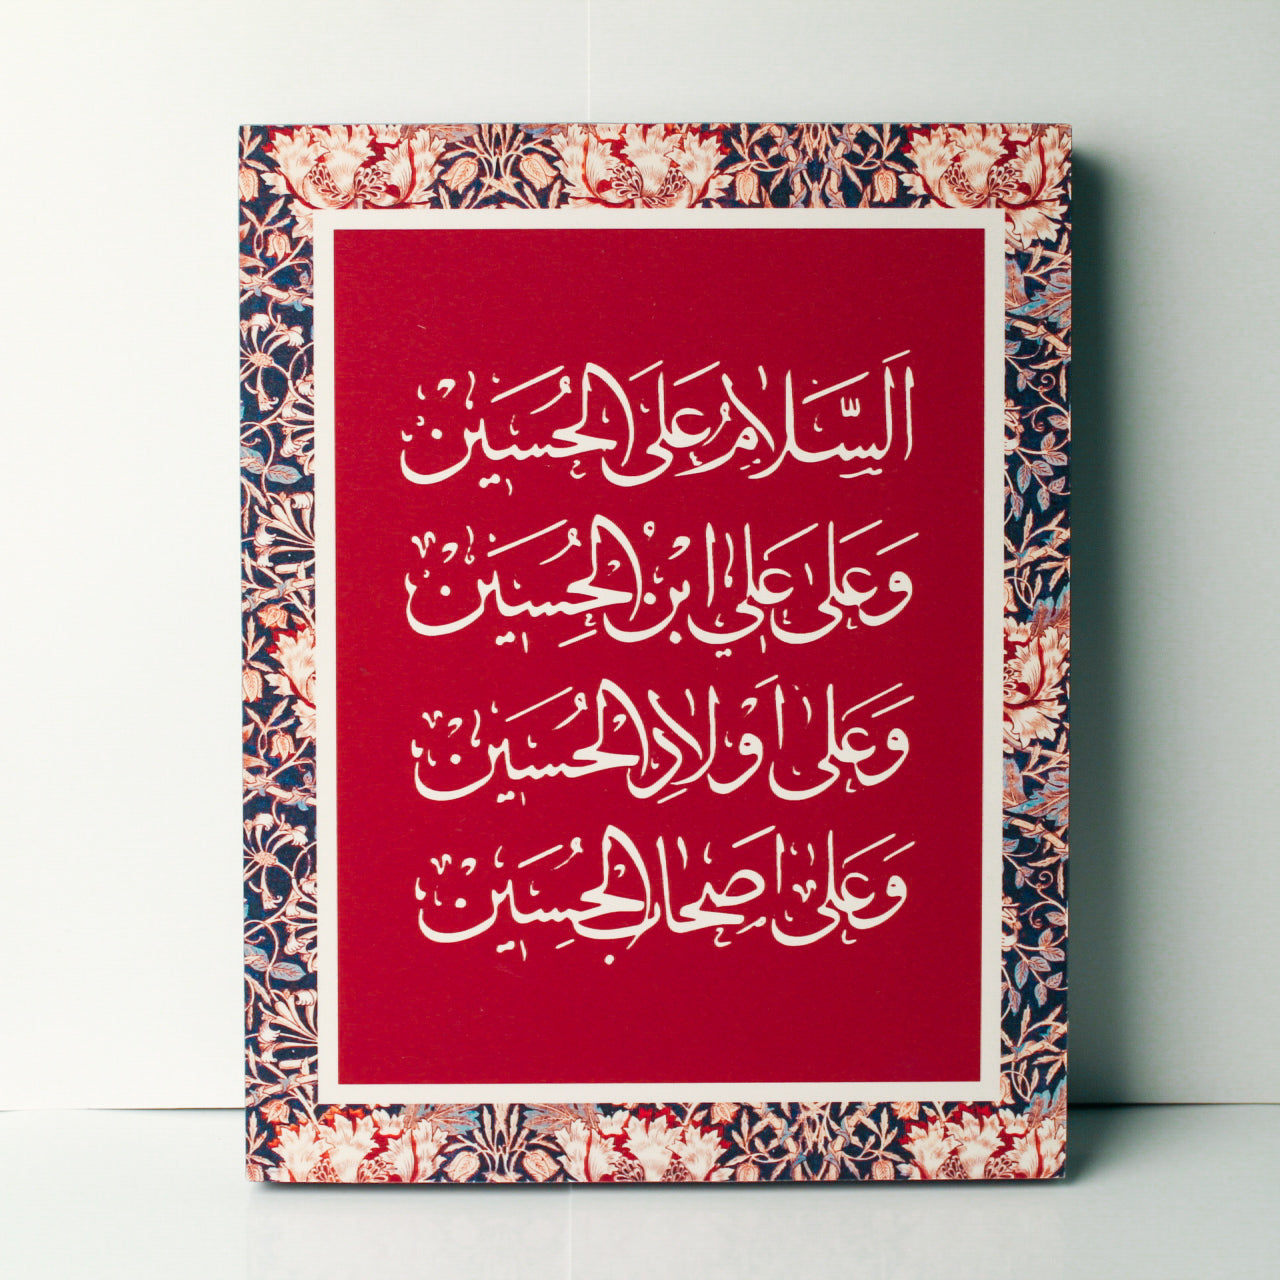 اَلسَّلامُ عَلَى الحُسَين
وَعَلى عَلي ابنْ الحُسِين
وَعَلى اَولادِ الحُسَين
وَعَلى اصحاب الحُسِين